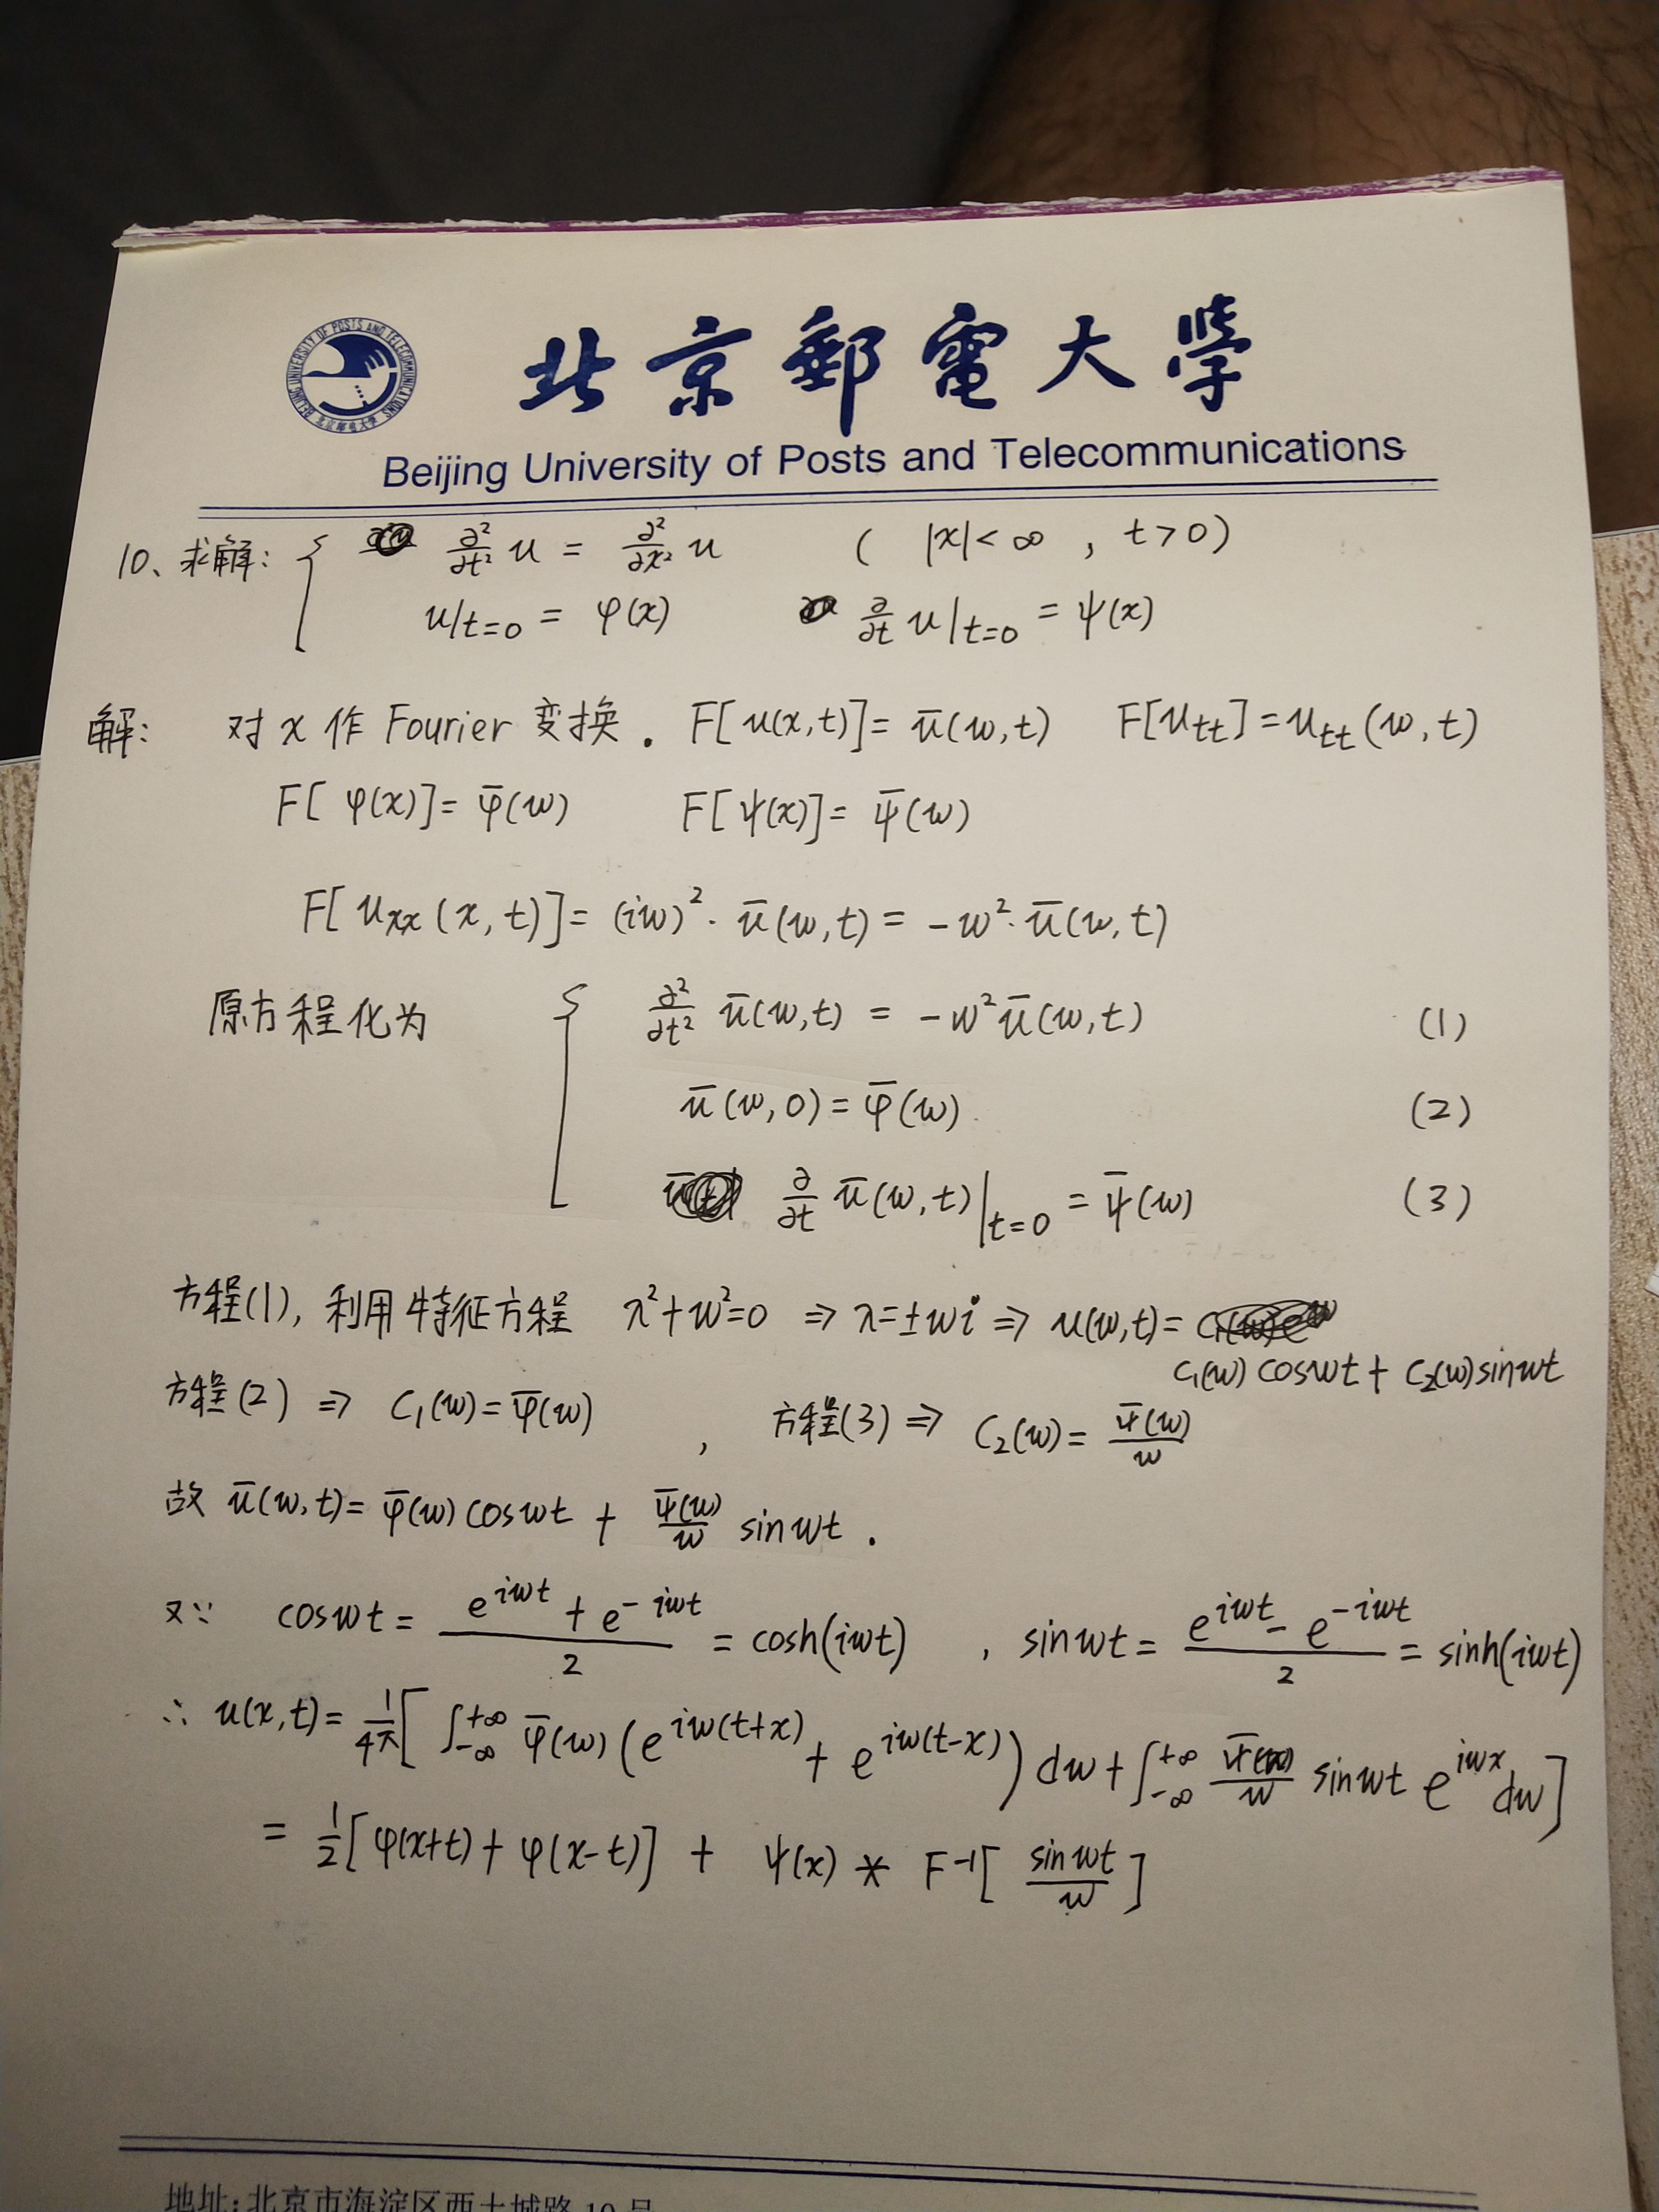 BEIJING UNIVERSITY OF POSTS AND TELECOMMUNICATIONS 北京邮电大学
北京郵電大學
Beijing University of Posts and Telecommunications
10、求解: { ∂²/∂t² u = ∂²/∂x² u ( |x|< ∞ , t>0)
u|t=0 = φ(x) ∂/∂t u|t=0 = ψ(x)
解: 对x作Fourier变换. F[u(x,t)]= ū(w,t) F[utt]=utt(w,t)
F[φ(x)]= φ̄(w) F[ψ(x)]= ψ̄(w)
F[uxx(x,t)]= (iw)²· ū(w,t) = -w²·ū(w,t)
原方程化为 { ∂²/∂t² ū(w,t) = -w²ū(w,t) (1)
ū(w,0)=φ̄(w) (2)
∂/∂t ū(w,t)|t=0 = ψ̄(w) (3)
方程(1), 利用特征方程 λ²+w²=0 ⇒ λ=±wi ⇒ u(w,t)=
C₁(w) coswt + C₂(w)sinwt
方程(2) ⇒ C₁(w)=φ̄(w) , 方程(3) ⇒ C₂(w)= ψ̄(w)/w
故 ū(w,t)= φ̄(w)coswt + ψ̄(w)/w sinwt .
又∵ coswt = (e^{iwt} + e^{-iwt})/2 = cosh(iwt) , sinwt = (e^{iwt} - e^{-iwt})/2 = sinh(iwt)
∴ u(x,t)= 1/4π [ ∫_{-∞}^{+∞} φ̄(w)(e^{iw(t+x)} + e^{iw(t-x)}) dw + ∫_{-∞}^{+∞} ψ̄(w)/w sinwt e^{iwx} dw]
= 1/2[φ(x+t)+φ(x-t)] + ψ(x) * F⁻¹[ sinwt/w ]
地址:北京市海淀区西土城路10号